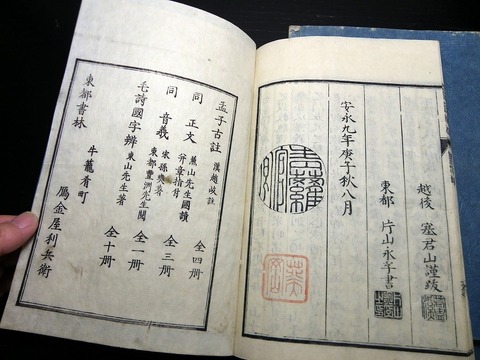 越後 塞君山謹跋
東都 片山永孚書
安永九年庚子秋八月
孟子古註 漢趙岐註 全四册
同 正文 蕉山先生國讀 全三册
同 音義 宋孫奭著 東都豐洲先生閲 全一册
毛詩國字辨 東山先生著 全十册
東都書林 牛籠肴町 金屋利兵衛